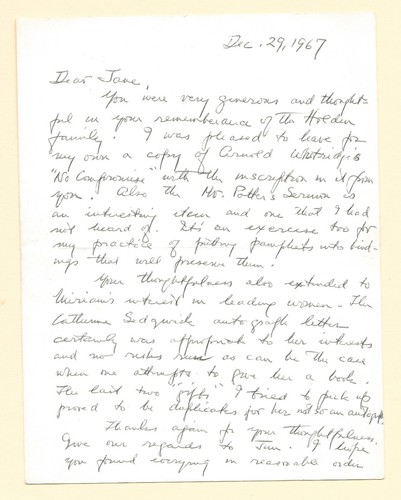 Dec. 29, 1967
Dear Jane,
You were very generous and thought-
ful in your rememberance of the Holden
family. I was pleased to have for
my own a copy of Arnold Whitridge's
"No Compromise" with the inscription in it from
you. Also the Mr. Potter's Sermon is
an interesting item and one that I had
not heard of. It's an exercise too for
my practice of putting pamphlets into bind-
ings that will preserve them.
Your thoughtfulness also extended to
Miriam's interest in leading women - The
Catherine Sedgwick autograph letter
certainly was appropriate to her interests
and no risks run as can be the case
when one attempts to give her a book.
The last two "gifts" I tried to pick up
proved to be duplicates for her not so an autograph.
Thanks again for your thoughtfulness.
Give our regards to . I hope
you found everything in reasonable order